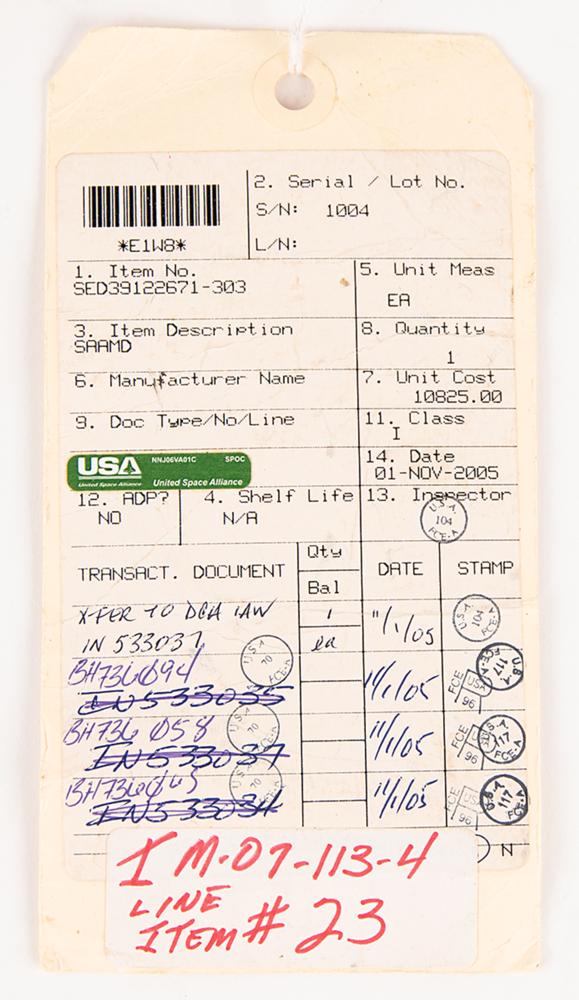 *E1W8*
2. Serial / Lot No.
S/N: 1004
L/N:
1. Item No.
SED39122671-303
5. Unit Meas
EA
3. Item Description
SAAMD
8. Quantity
1
6. Manufacturer Name
7. Unit Cost
10825.00
9. Doc Type/No/Line
11. Class
I
USA NNJ06VA01C SPOC
United Space Alliance United Space Alliance
14. Date
01-NOV-2005
12. ADP?
NO
4. Shelf Life
N/A
13. Inspector
USA 104 FCE-A
TRANSACT. DOCUMENT Qty Bal DATE STAMP
X-FER TO DCA IAW 1 11/1/05 USA 104 FCE-A
IN 533037 ea
USA 70 FCE-A
BH736094 11/1/05 FCE USA 96 USA 117 FCE-A
IN533035
BH736058 11/1/05 FCE USA 96 USA 117 FCE-A
IN533037
11/1/05 FCE USA 96 USA 117 FCE-A
IN533034
N
IM-07-113-4
LINE
ITEM # 23